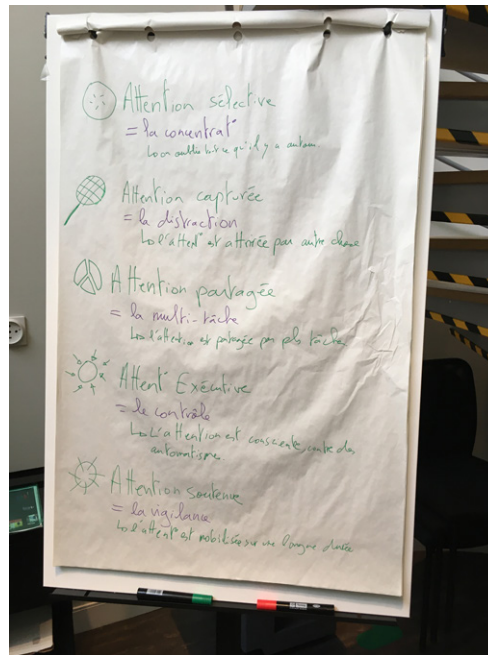 Attention sélective
= la concentrat°
↳ on oublie tout ce qu'il y a autour
Attention capturée
= la distraction
↳ l'attent° est attirée par autre chose
Attention partagée
= la multi-tâche
↳ l'attention est partagée par pls tâches
Attent° Exécutive
= le contrôle
↳ L'attention est consciente, contre des
automatisme
Attention soutenue
= la vigilance
↳ l'attent° est mobilisée sur une longue durée